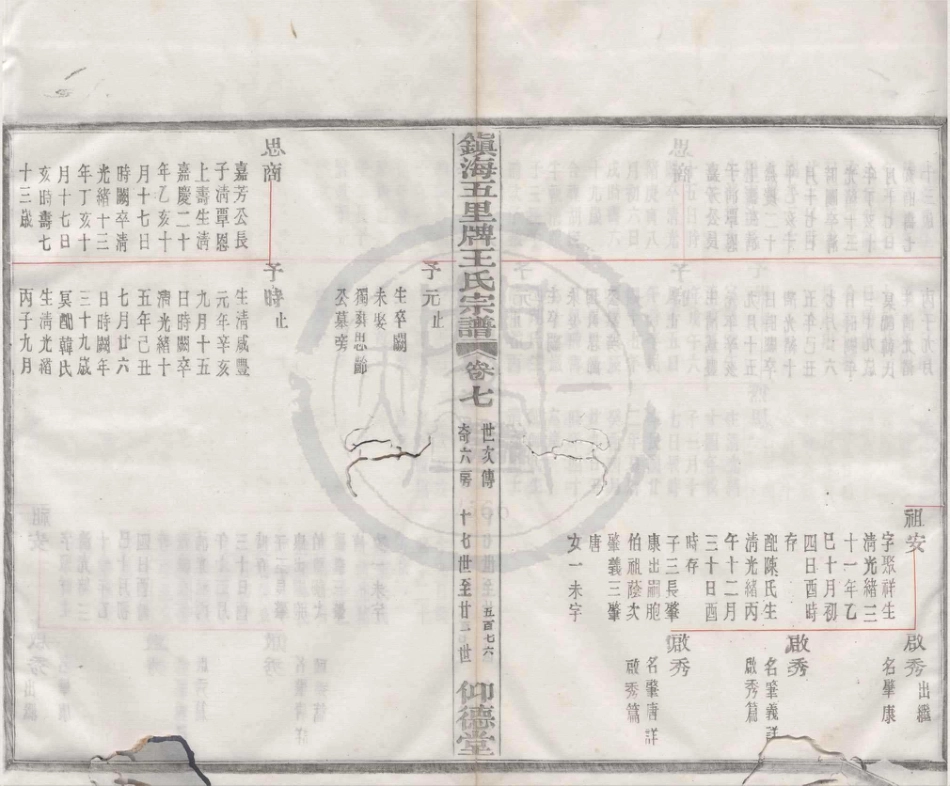 祖安
字聚祥生
清光緒三
十一年乙
巳十月初
四日酉時
存
配陳氏生
清光緒丙
午十二月
三十日酉
時存
子三長肇
康出嗣胞
伯祖蔭次
肇義三肇
唐
女一未字
啟秀
出繼
名肇康
啟秀
名肇義詳
啟秀篇
啟秀
名肇唐詳
啟秀篇
鎮海五里牌王氏宗譜
卷七
世次傳
奇六房
十七世至廿三世
五百七六
仰德堂
子元止
生卒闕
未娶
獨葬思齡
公墓旁
思商
嘉芳公長
子清覃恩
上壽生清
嘉慶二十
年乙亥十
月十七日
時闕卒清
光緒十三
年丁亥十
月十七日
亥時壽七
十三歲
子時止
生清咸豐
元年辛亥
九月十五
日時闕卒
清光緒十
五年己丑
七月廿六
日時闕年
三十九歲
冥配韓氏
生清光緒
丙子九月